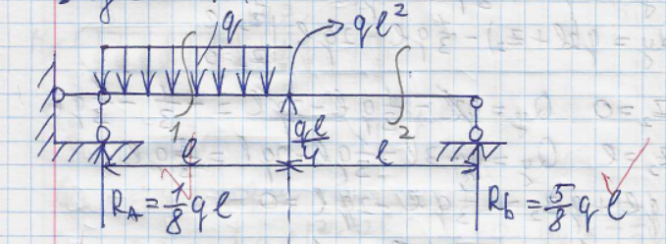 q
ql²
1
2
ql/4
l
l
R_A = 1/8 ql
R_b = 5/8 ql